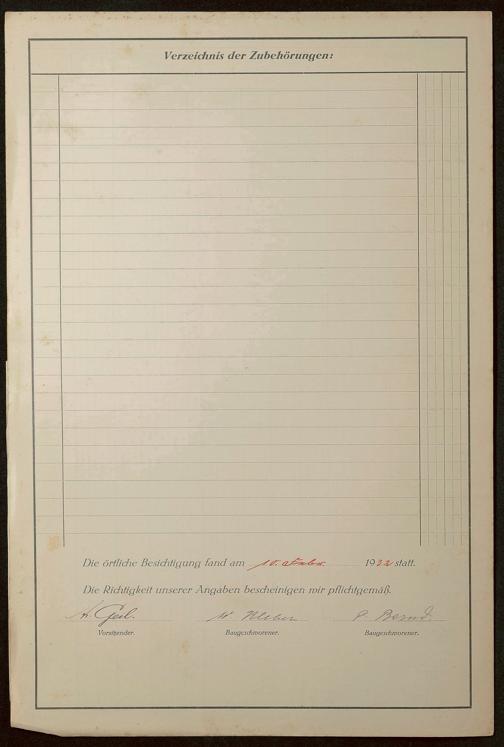 Verzeichnis der Zubehörungen:
Die örtliche Besichtigung fand am 10. Oktober 1932 statt.
Die Richtigkeit unserer Angaben bescheinigen wir pflichtgemäß.
W. Kleber P. Bernd.
Vorsitzender. Baugeschworener. Baugeschworener.